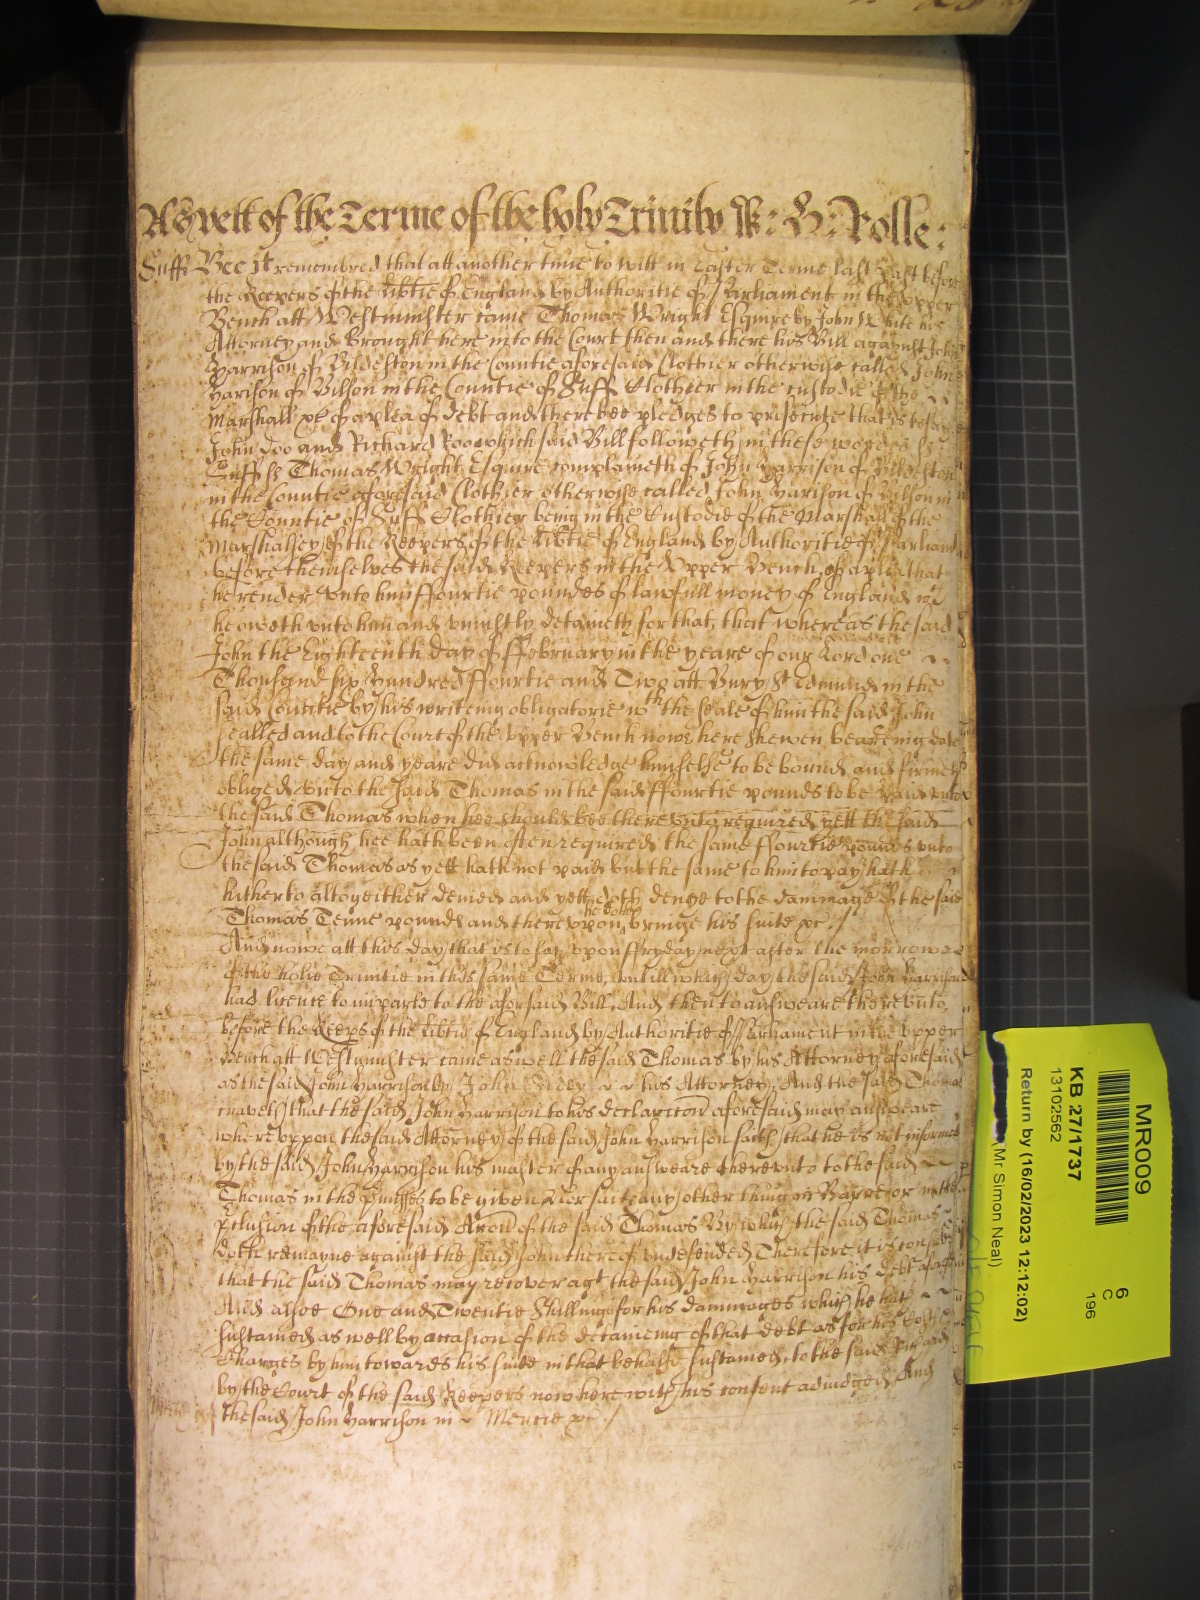 As yett of the Terme of the holy Trinity Rolle:
Suff: Bee it remembred that att another time to witt in Easter Terme last past before
the Keepers of the Libtie of England by Authoritie of Parliament in the upper
Bench att Westminster came Thomas Wright Esquire by John White his
Attorney and brought here into the Court then and there his Bill against John
Harrison of Bildeston in the Countie aforesaid Clothier otherwise called John
Harison of Bilson in the Countie of Suff Clothier in the custodie of the
Marshall &c of a plea of debt and there bee pledges to prosecute that is to say
John Doo and Richard Roo which said Bill followeth in these wordes ss
Suff ss Thomas Wright Esquire complaineth of John Harrison of Bildeston
in the Countie aforesaid Clothier otherwise called John Harison of Bilson in
the Countie of Suff Clothier being in the Custodie of the Marshall of the
Marshalsey of the Keepers of the Libtie of England by Authoritie of Parliamt
before themselves the said Keepers in the Upper Bench of a plea that
he render unto him ffourtie poundes of lawfull money of England wch
he oweth unto him and uniustly detaineth for that, that whereas the said
John the Eighteenth day of ffebruary in the yeare of our Lord one
Thousand six hundred ffourtie and Two att Bury St Edmunds in the
said Countie by his writeing obligatorie wth the seale of him the said John
sealled and to the Court of the upper Bench nowe here shewen beareing date
the same day and yeare did acknowledge himselfe to be bound and firmely
obliged unto the said Thomas in the said ffourtie pounds to be paid unto
the said Thomas when hee should bee thereunto required yett the said
John although hee hath been often required the same ffourtie pounds unto
the said Thomas as yett hath not paid but the same to him to pay hath
hitherto altogeither denied and yett doth denye to the dammage of the said
Thomas Tenne pounds and thereupon he doth bringe his suite &c ./
And nowe att this day that is to say upon ffryday next after the morrowe
of the holie Trinitie in this same Terme, untill which day the said John Harrison
had licence to imparle to the aforsaid Bill, And then to answeare thereunto,
before the Keeps of the Libtie of England by Authoritie of Parliament in the upper
Bench att Westminster came aswell the said Thomas by his Attorney aforesaid
as the said John Harrison by John his Attorney, And the said Thomas
craveth that the said John Harrison to his declaracon aforesaid may answeare
whereuppon the said Attorney of the said John Harrison saith that he is not informed
by the said John Harrison his master of any answeare thereunto to the said
Thomas in the pmisses to be given Nor saith any other thing in Barre or in the
Pclusion of the aforesaid Accon of the said Thomas By which the said Thomas
doth remayne against the said John thereof undefended Therefore it is considered
that the said Thomas may recover agt the said John Harrison his debt aforesaid
And alsoe One and Twentie Shillings for his dammages which he hath
sustained as well by occasion of the detaineing of that debt as for his Costs
Charges by him towards his suite in that behalfe sustained, to the said
by the Court of the said Keepers now here with his consent adiudged And
the said John Harrison in Mercie &c ./
MR009
6
C
196
KB 27/1737
13102562
Return by (16/02/2023 12:12:02)
(Mr Simon Neal)